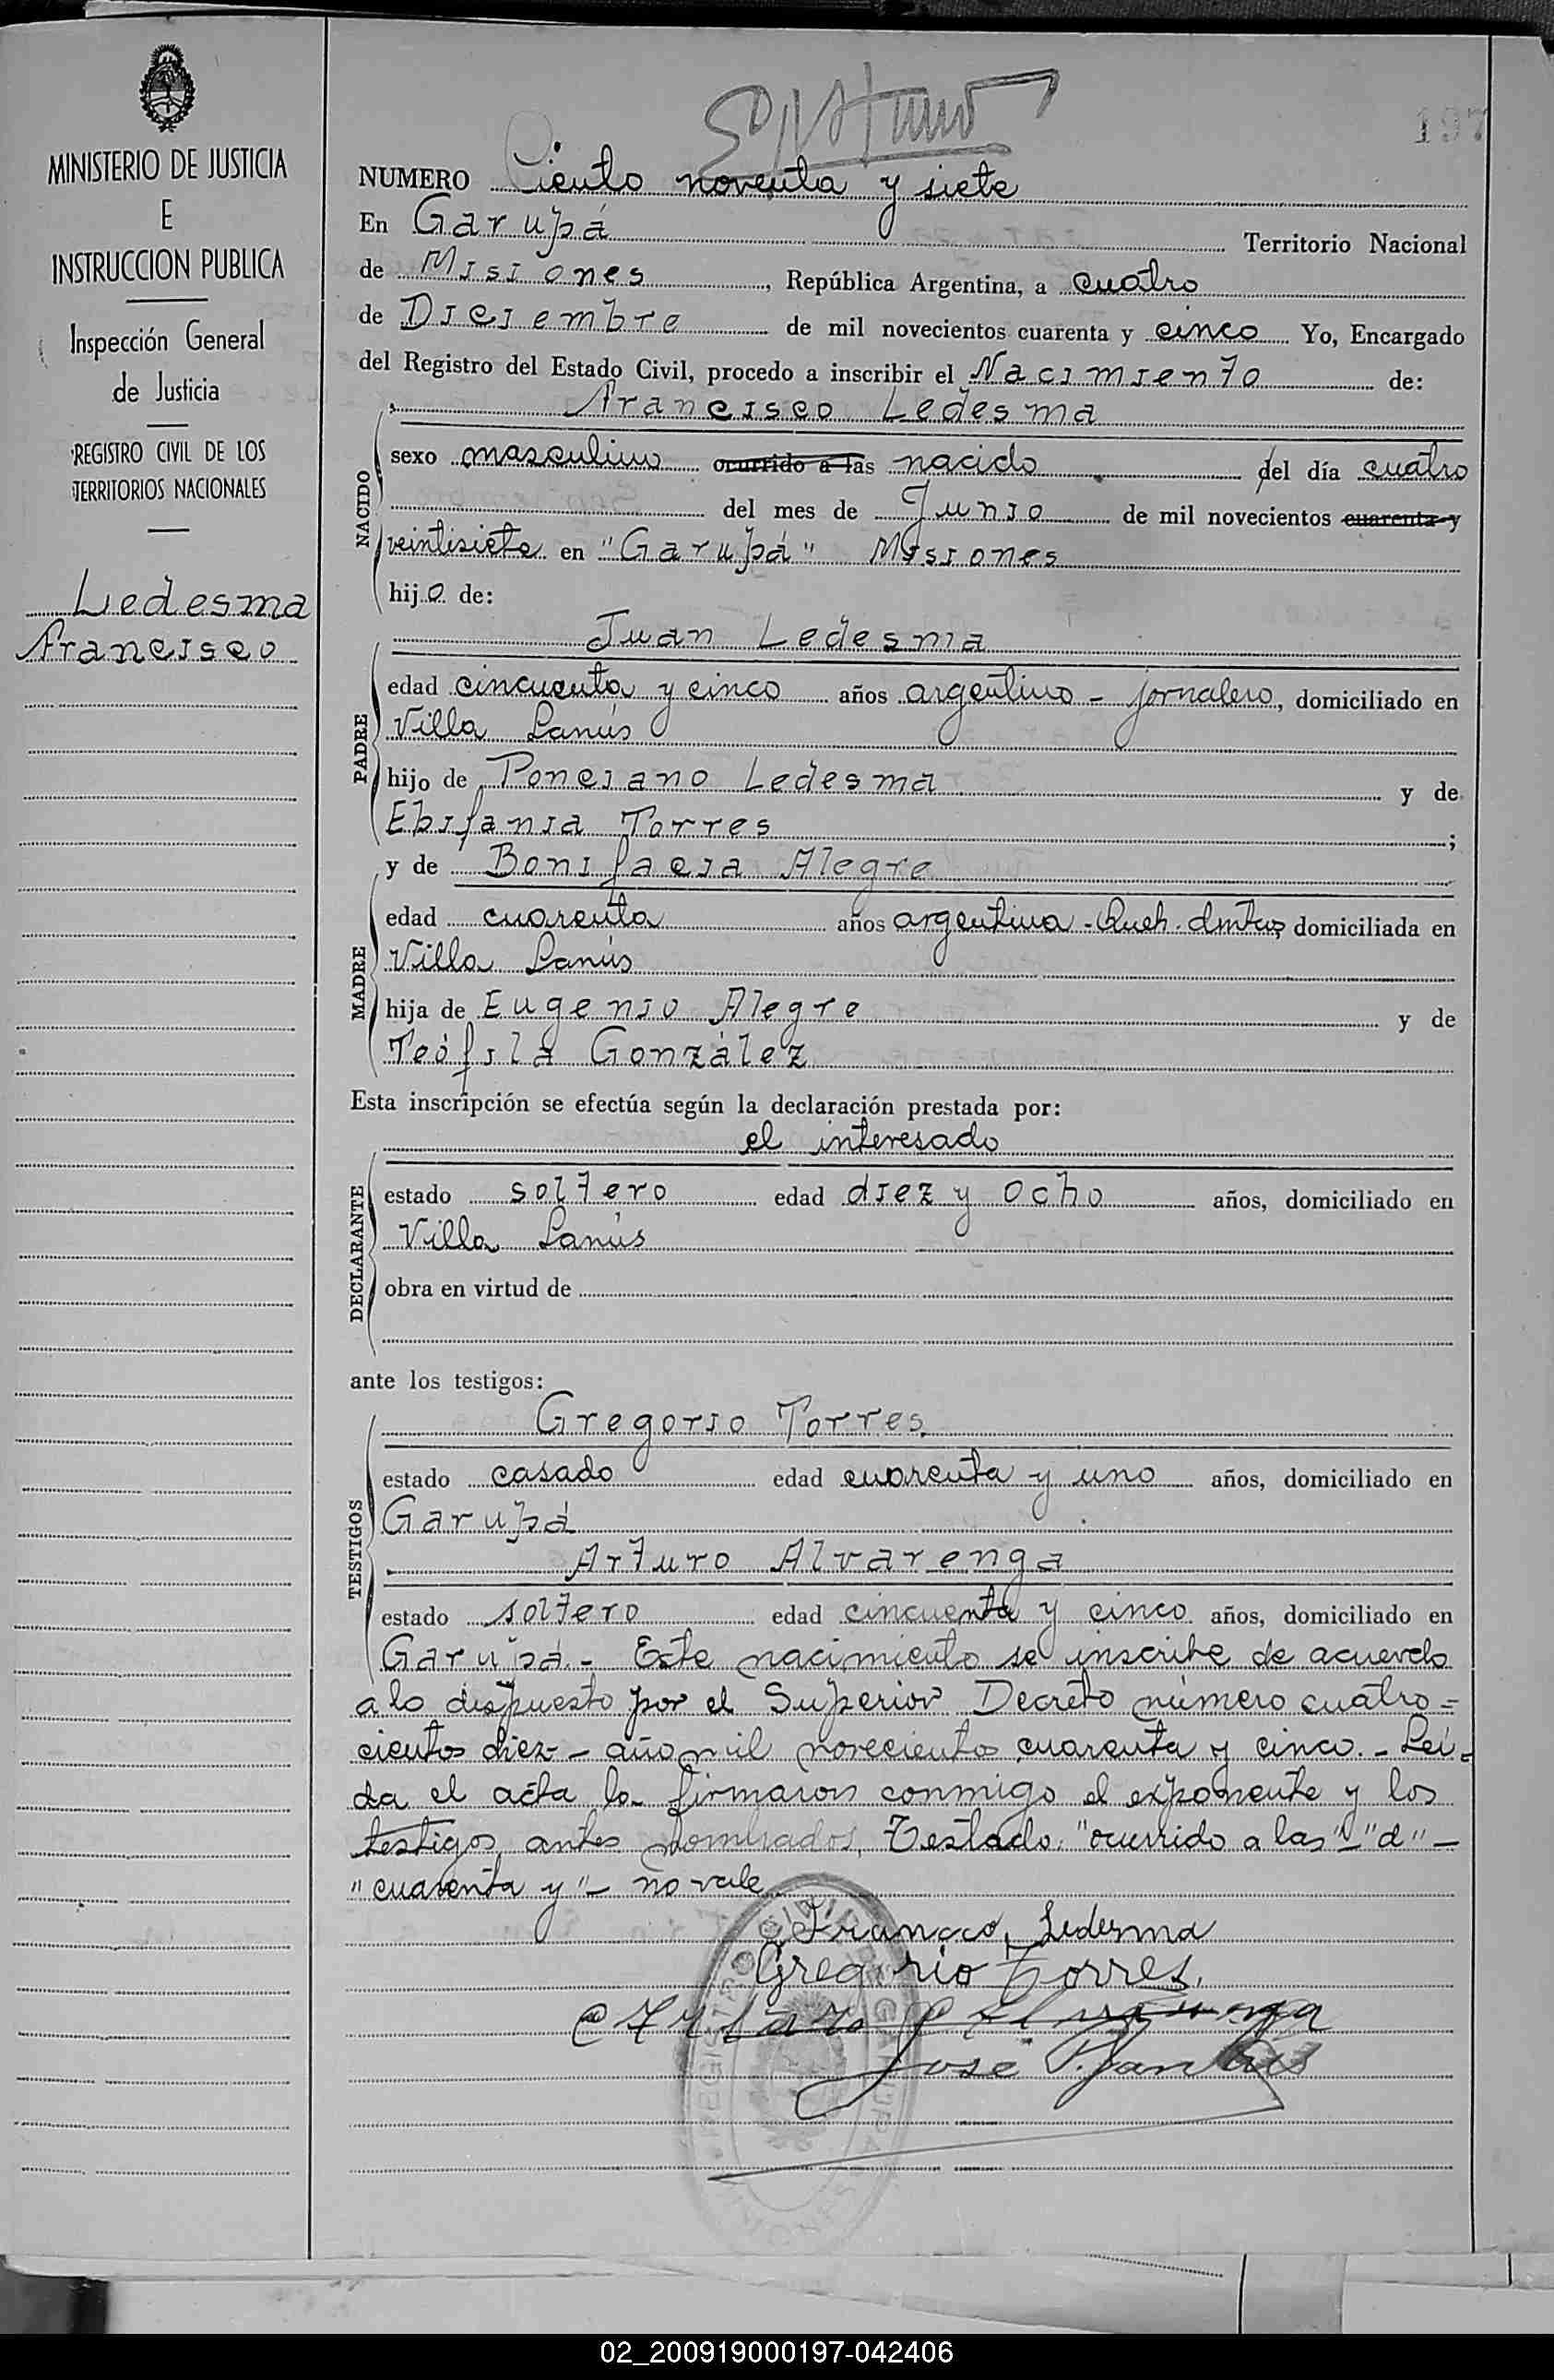 MINISTERIO DE JUSTICIA
E
INSTRUCCION PUBLICA
Inspección General
de Justicia
REGISTRO CIVIL DE LOS
TERRITORIOS NACIONALES
Ledesma
Francisco
197
NUMERO Ciento noventa y siete
En Garupá Territorio Nacional
de Misiones, República Argentina, a cuatro
de Diciembre de mil novecientos cuarenta y cinco Yo, Encargado
del Registro del Estado Civil, procedo a inscribir el Nacimiento de:
Francisco Ledesma
NACIDO
sexo masculino ocurrido a las nacido del día cuatro
del mes de Junio de mil novecientos cuarenta y
veintisiete en "Garupá" Misiones
hijo de:
Juan Ledesma
PADRE
edad cincuenta y cinco años argentino - jornalero, domiciliado en
Villa Lanús
hijo de Ponciano Ledesma y de
Epifania Torres;
y de Bonifacia Alegre
MADRE
edad cuarenta años argentina - Queh. dmtcs domiciliada en
Villa Lanús
hija de Eugenio Alegre y de
Teófila González
Esta inscripción se efectúa según la declaración prestada por:
el interesado
DECLARANTE
estado soltero edad diez y ocho años, domiciliado en
Villa Lanús
obra en virtud de
ante los testigos:
Gregorio Torres.
TESTIGOS
estado casado edad cuarenta y uno años, domiciliado en
Garupá
Arturo Alvarenga
estado soltero edad cincuenta y cinco años, domiciliado en
Garupá.- Este nacimiento se inscribe de acuerdo
a lo dispuesto por el Superior Decreto número cuatro=
cientos diez - año mil novecientos cuarenta y cinco. - Lei=
da el acta la firmaron conmigo el exponente y los
testigos antes nombrados, Testado: "ocurrido a las" - "d" -
"cuarenta y" - no vale
Francisco Ledesma
Gregorio Torres.
REGISTRO CIVIL DE GARUPA
02_200919000197-042406